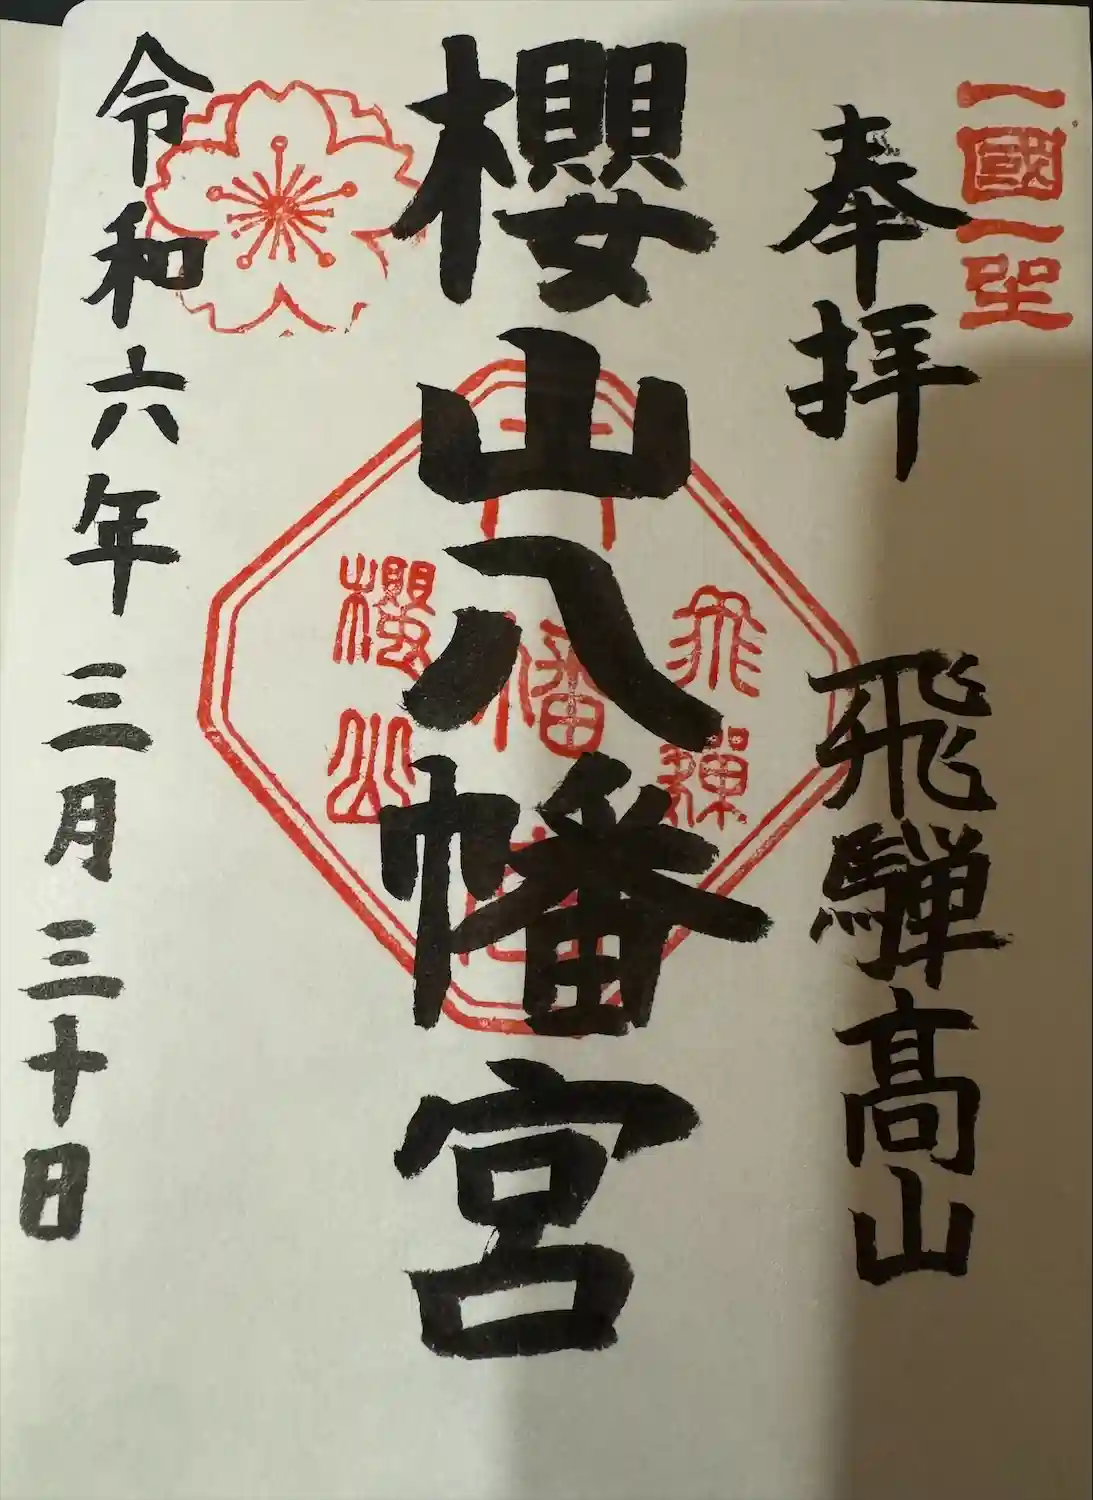 一國一聖
奉拝 飛騨高山
櫻山八幡宮
飛騨
櫻山
令和六年三月三十日